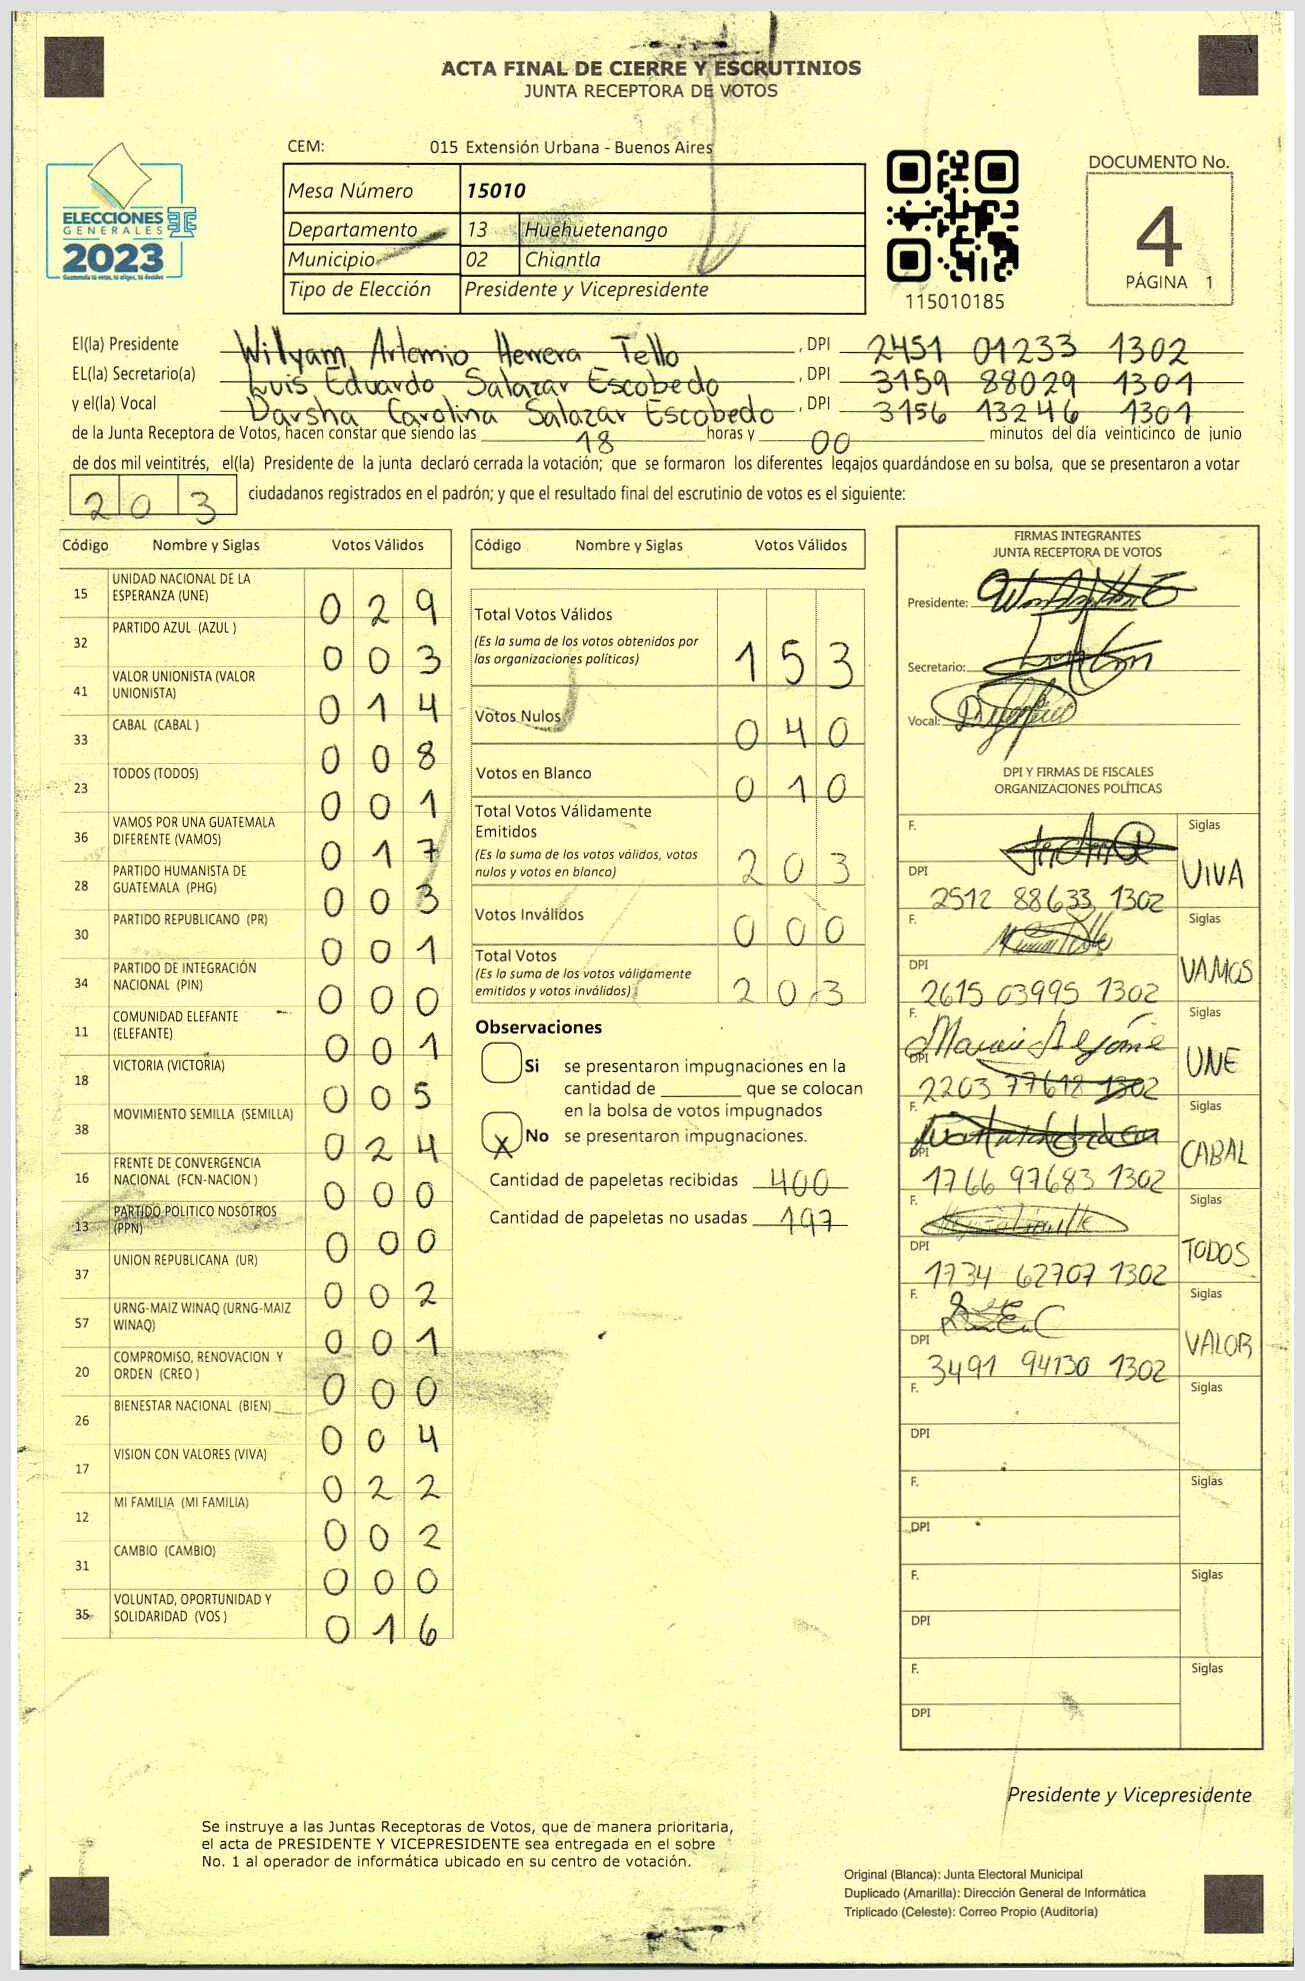 ACTA FINAL DE CIERRE Y ESCRUTINIOS
JUNTA RECEPTORA DE VOTOS
CEM: 015 Extensión Urbana - Buenos Aires
Mesa Número 15010
Departamento 13 Huehuetenango
Municipio 02 Chiantla
Tipo de Elección Presidente y Vicepresidente
ELECCIONES
GENERALES
2023
Guatemala tú votas, tú eliges, tú decides
115010185
DOCUMENTO No.
4
PÁGINA 1
El(la) Presidente Wilyam Artemio Herrera Tello , DPI 2451 01233 1302
EL(la) Secretario(a) Luis Eduardo Salazar Escobedo , DPI 3159 88029 1301
y el(la) Vocal Darsha Carolina Salazar Escobedo , DPI 3156 13246 1301
de la Junta Receptora de Votos, hacen constar que siendo las 18 horas y 00 minutos del día veinticinco de junio
de dos mil veintitrés, el(la) Presidente de la junta declaró cerrada la votación; que se formaron los diferentes legajos guardándose en su bolsa, que se presentaron a votar
203 ciudadanos registrados en el padrón; y que el resultado final del escrutinio de votos es el siguiente:
Código Nombre y Siglas Votos Válidos
15 UNIDAD NACIONAL DE LA ESPERANZA (UNE) 029
32 PARTIDO AZUL (AZUL ) 003
41 VALOR UNIONISTA (VALOR UNIONISTA) 014
33 CABAL (CABAL ) 008
23 TODOS (TODOS) 001
36 VAMOS POR UNA GUATEMALA DIFERENTE (VAMOS) 017
28 PARTIDO HUMANISTA DE GUATEMALA (PHG) 003
30 PARTIDO REPUBLICANO (PR) 001
34 PARTIDO DE INTEGRACIÓN NACIONAL (PIN) 000
11 COMUNIDAD ELEFANTE (ELEFANTE) 001
18 VICTORIA (VICTORIA) 005
38 MOVIMIENTO SEMILLA (SEMILLA) 024
16 FRENTE DE CONVERGENCIA NACIONAL (FCN-NACION ) 000
13 PARTIDO POLITICO NOSOTROS (PPN) 000
37 UNION REPUBLICANA (UR) 002
57 URNG-MAIZ WINAQ (URNG-MAIZ WINAQ) 001
20 COMPROMISO, RENOVACION Y ORDEN (CREO ) 000
26 BIENESTAR NACIONAL (BIEN) 004
17 VISION CON VALORES (VIVA) 022
12 MI FAMILIA (MI FAMILIA) 002
31 CAMBIO (CAMBIO) 000
35 VOLUNTAD, OPORTUNIDAD Y SOLIDARIDAD (VOS ) 016
Código Nombre y Siglas Votos Válidos
Total Votos Válidos
(Es la suma de los votos obtenidos por
las organizaciones políticas) 153
Votos Nulos 040
Votos en Blanco 010
Total Votos Válidamente
Emitidos
(Es la suma de los votos válidos, votos
nulos y votos en blanco) 203
Votos Inválidos 000
Total Votos
(Es la suma de los votos válidamente
emitidos y votos inválidos) 203
Observaciones
Si se presentaron impugnaciones en la
cantidad de ________ que se colocan
en la bolsa de votos impugnados
X No se presentaron impugnaciones.
Cantidad de papeletas recibidas 400
Cantidad de papeletas no usadas 197
FIRMAS INTEGRANTES
JUNTA RECEPTORA DE VOTOS
Presidente:
Secretario:
Vocal:
DPI Y FIRMAS DE FISCALES
ORGANIZACIONES POLÍTICAS
F. Siglas VIVA
DPI 2512 88633 1302
F. Siglas VAMOS
DPI 2615 03995 1302
F. Siglas UNE
DPI 2203 77618 1302
F. Siglas CABAL
DPI 1766 97683 1302
F. Siglas TODOS
DPI 1734 62707 1302
F. Siglas VALOR
DPI 3491 94130 1302
F. Siglas
DPI
F. Siglas
DPI
F. Siglas
DPI
F. Siglas
DPI
Presidente y Vicepresidente
Se instruye a las Juntas Receptoras de Votos, que de manera prioritaria,
el acta de PRESIDENTE Y VICEPRESIDENTE sea entregada en el sobre
No. 1 al operador de informática ubicado en su centro de votación.
Original (Blanca): Junta Electoral Municipal
Duplicado (Amarilla): Dirección General de Informática
Triplicado (Celeste): Correo Propio (Auditoría)